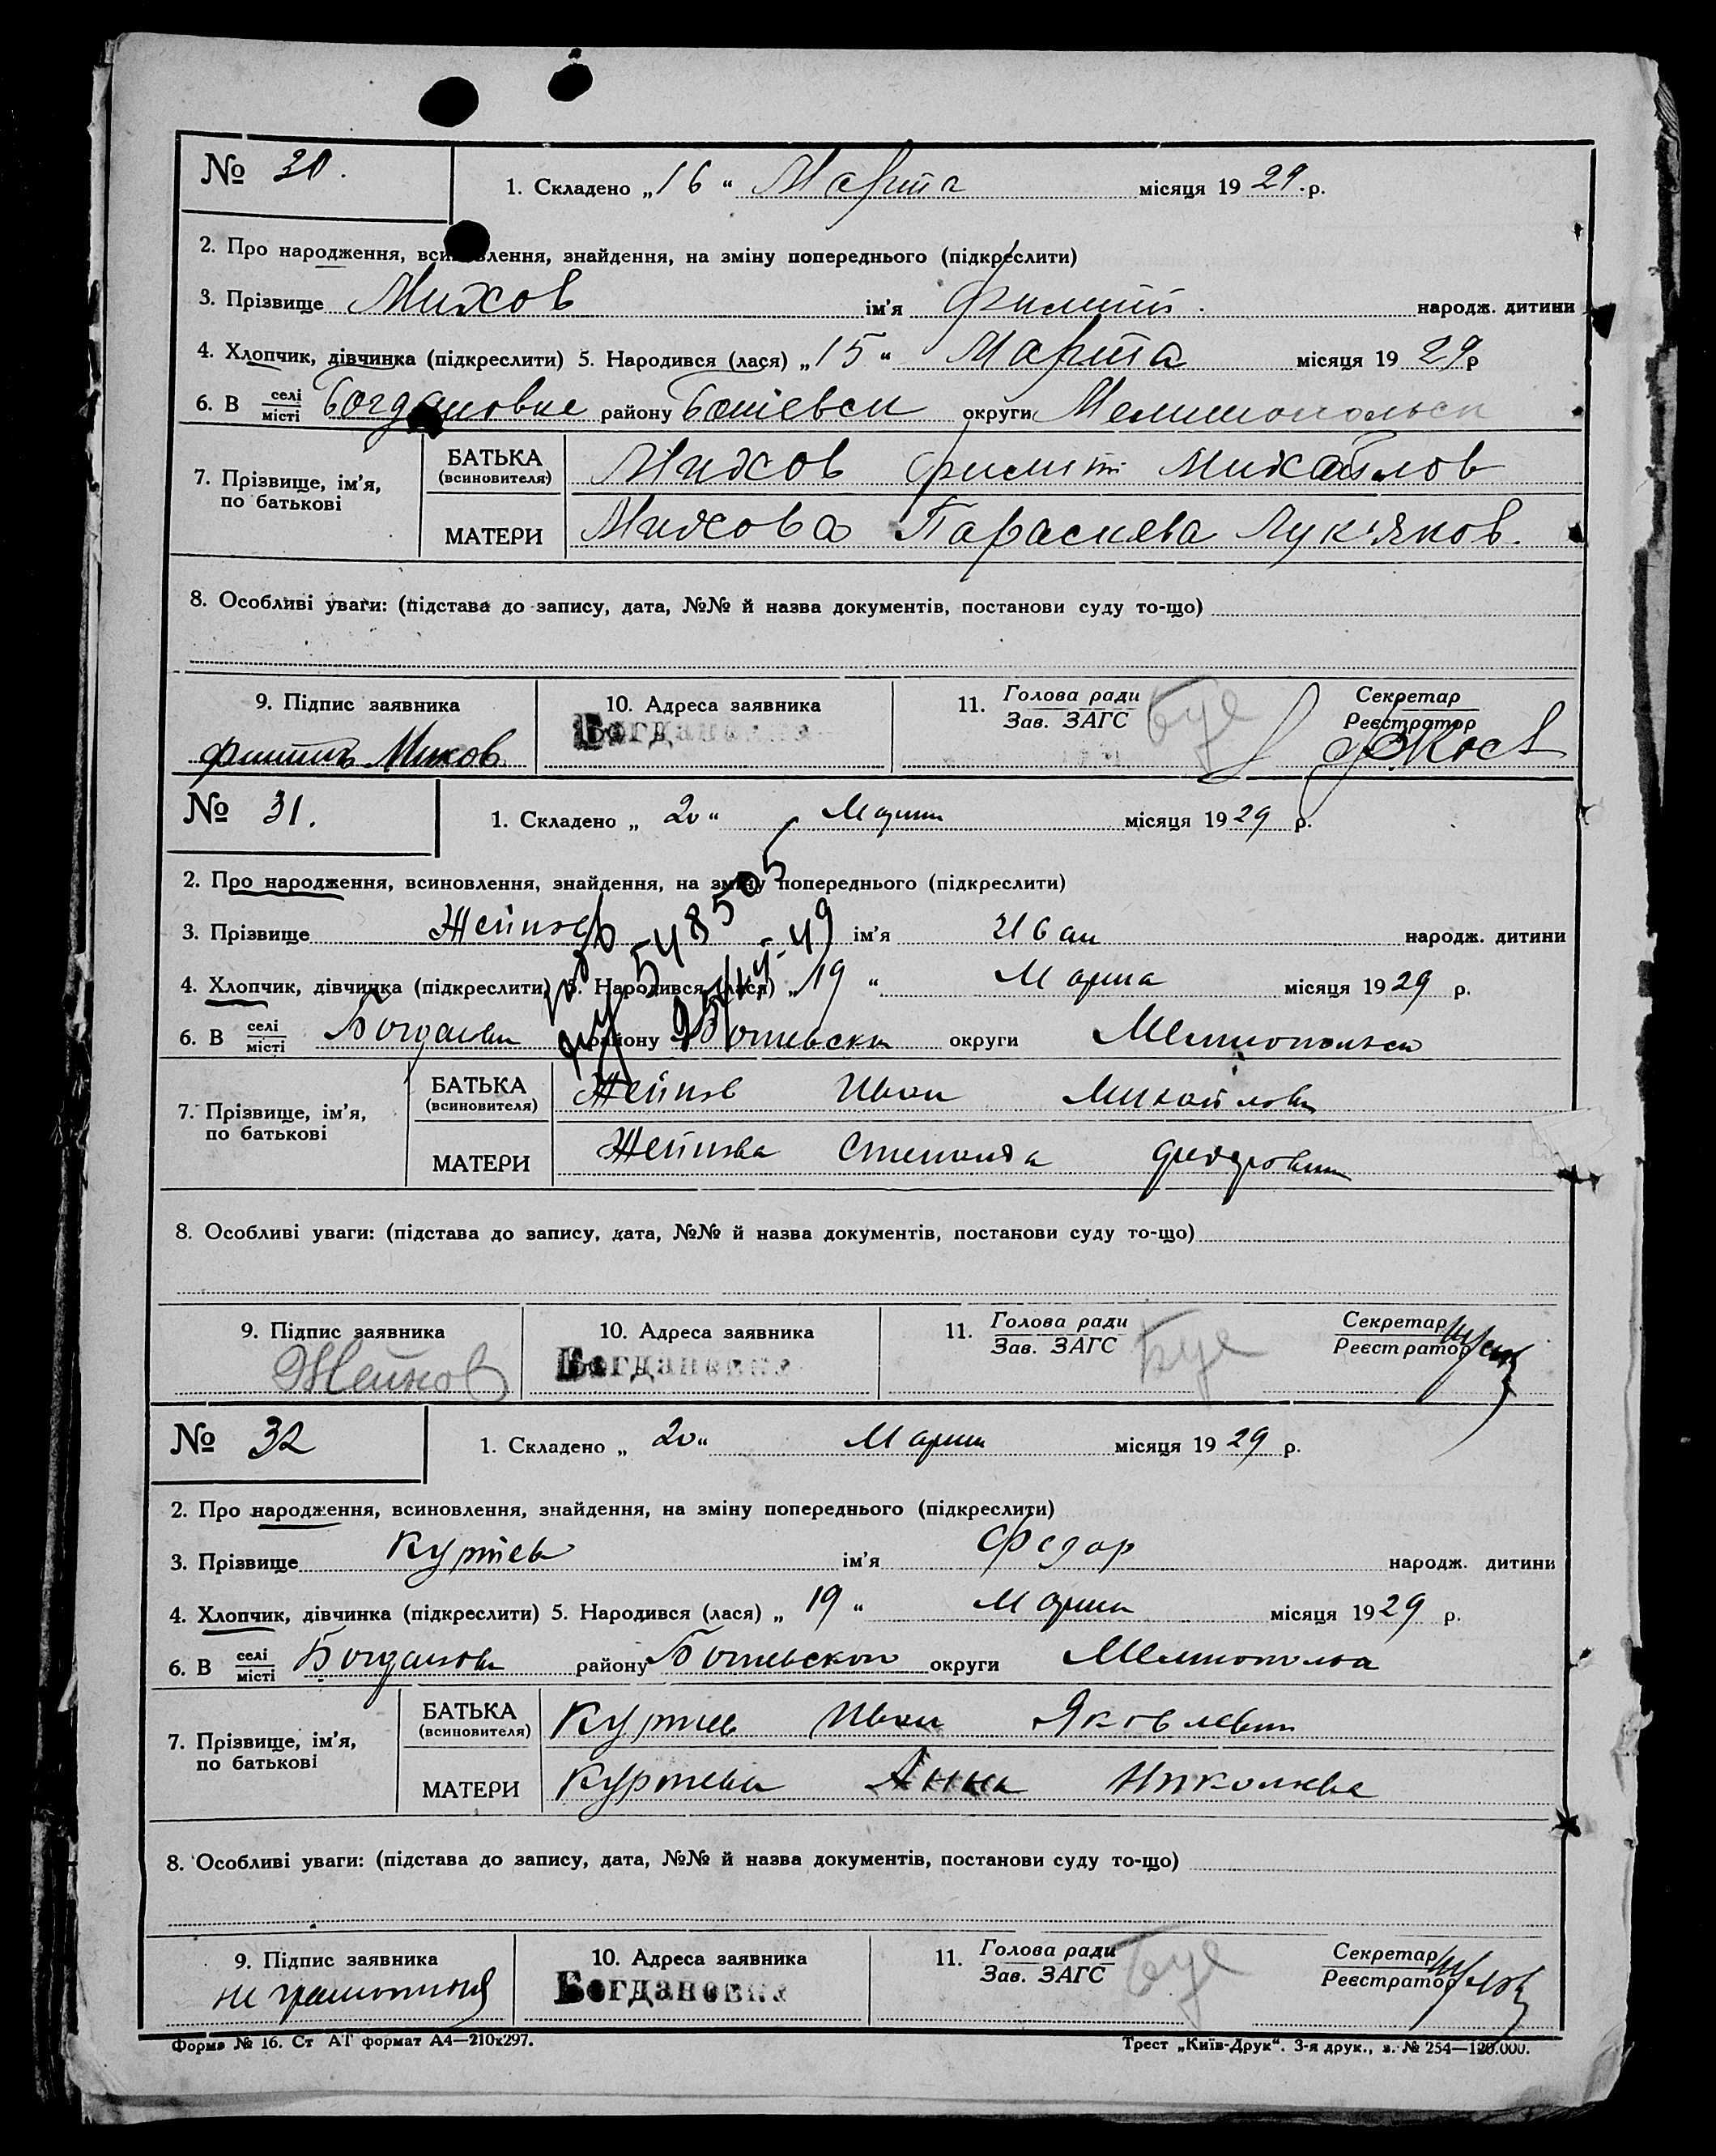 № 30.
1. Складено „16“ Марта місяця 1929 р.
2. Про народження, всиновлення, знайдення, на зміну попереднього (підкреслити)
3. Прізвище Михов ім'я Филипп. народж. дитини
4. Хлопчик, дівчинка (підкреслити) 5. Народився (лася) „15“ Марта місяця 1929 р
6. В селі/місті Богдановке району Ботіевск округи Мелитопольск
7. Прізвище, ім'я, по батькові
БАТЬКА (всиновителя) Михов Филипп Михайлов
МАТЕРИ Михова Параскева Лук'янов.
8. Особливі уваги: (підстава до запису, дата, №№ й назва документів, постанови суду то-що)
9. Підпис заявника
10. Адреса заявника
11. Голова ради
Зав. ЗАГС
Секретар
Реєстратор
Филипъ Михов
Богдановка
№ 31.
1. Складено „20“ Марта місяця 1929 р.
2. Про народження, всиновлення, знайдення, на зміну попереднього (підкреслити)
3. Прізвище Жейнов ім'я Иван народж. дитини
4. Хлопчик, дівчинка (підкреслити) 5. Народився (лася) „19“ Марта місяця 1929 р.
6. В селі/місті Богдановк району Ботиевски округи Мелитопольск
7. Прізвище, ім'я, по батькові
БАТЬКА (всиновителя) Жейнов Иван Михайлович
МАТЕРИ Жейнова Степанида Федоровна
8. Особливі уваги: (підстава до запису, дата, №№ й назва документів, постанови суду то-що)
9. Підпис заявника
10. Адреса заявника
11. Голова ради
Зав. ЗАГС
Секретар
Реєстратор
Жейнов
Богдановка
№ 32
1. Складено „20“ Марта місяця 1929 р.
2. Про народження, всиновлення, знайдення, на зміну попереднього (підкреслити)
3. Прізвище Куртев ім'я Федор народж. дитини
4. Хлопчик, дівчинка (підкреслити) 5. Народився (лася) „19“ Марта місяця 1929 р.
6. В селі/місті Богдановк району Ботиевского округи Мелитополя
7. Прізвище, ім'я, по батькові
БАТЬКА (всиновителя) Куртев Иван Яковлевич
МАТЕРИ Куртева Анна Николаева
8. Особливі уваги: (підстава до запису, дата, №№ й назва документів, постанови суду то-що)
9. Підпис заявника
10. Адреса заявника
11. Голова ради
Зав. ЗАГС
Секретар
Реєстратор
не грамотный
Богдановка
Форма № 16. Ст АТ формат А4—210х297.
Трест „Київ-Друк“. 3-я друк., з. № 254—120.000.